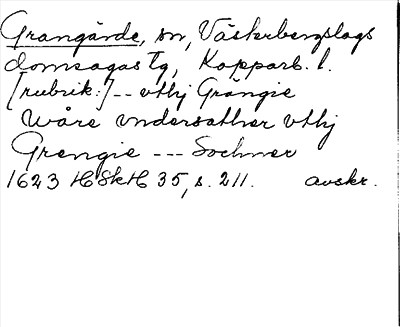 Grangärde, sn, Västerbergslags
domsagas tg, Kopparb. l.
[rubrik:] -- vthj Grängie
Wåre vndersåther vthj
Grengie --- Sochner
1623 HSkH 35, s. 211. avskr.